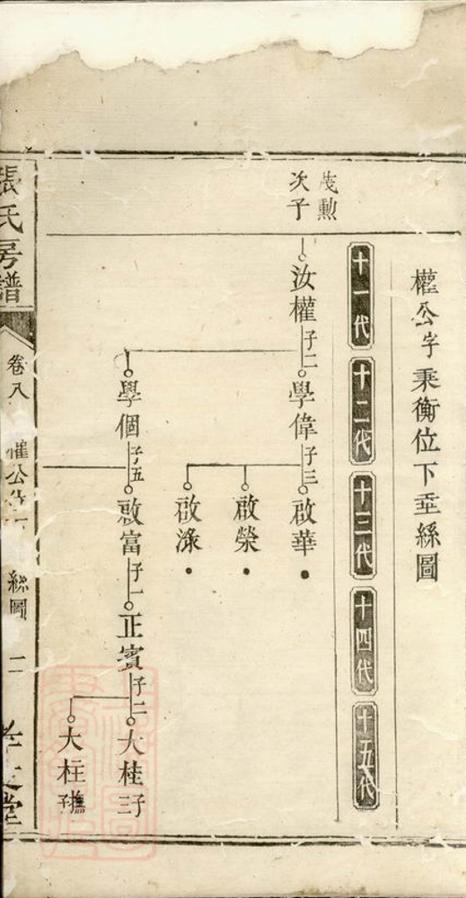 權公字秉衡位下垂絲圖
十一代
十二代
十三代
十四代
十五代
茂勲
次子
汝權
子二
學偉
子三
啟華
啟榮
啟渌
學個
子五
啟富
子一
正賓
子二
大桂
子二
大柱
撫子
張氏房譜
卷八
權公
絲圖
二
堂